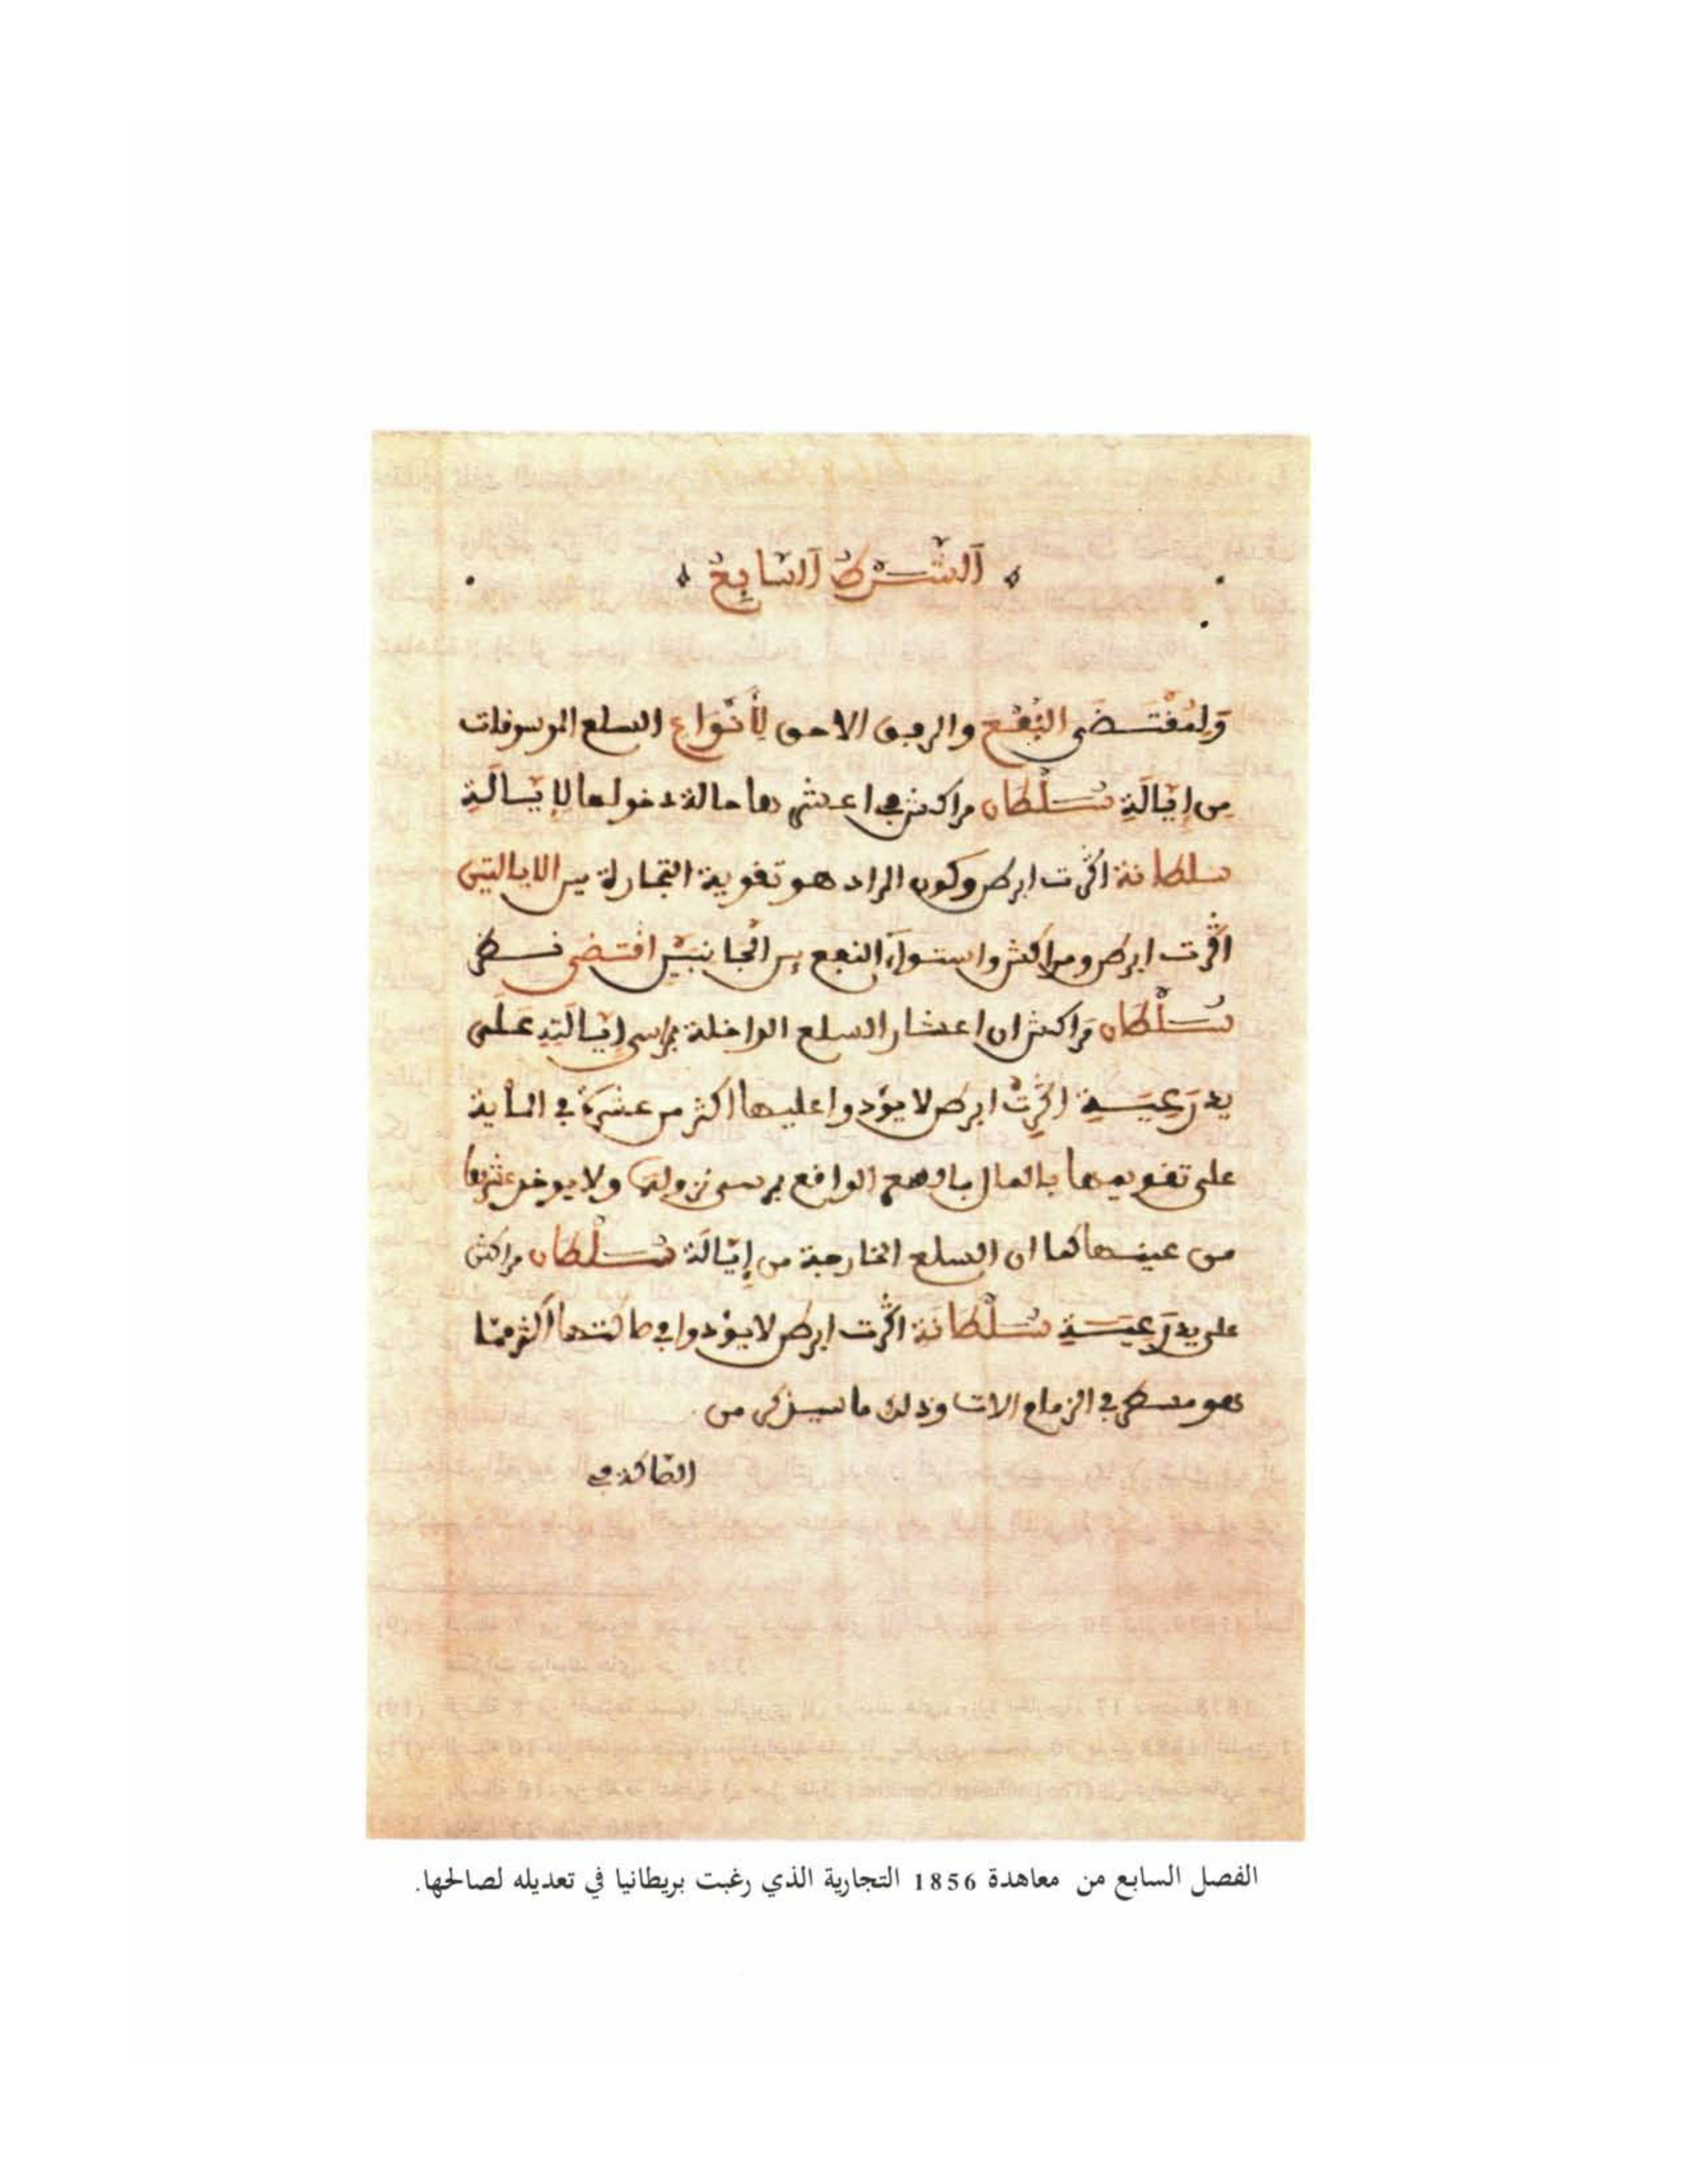 اَلشَّرْطُ اَلسَّابِعُ
وَلِمُقْتَضَى النَّفْعِ والرفق الاحق لِأَنْوَاعِ السلع الموسوقات
من إِيَّالَةِ سُلْطَان مراكش في اعشارها حالة دخولها لإيَّالَةِ
سلطانة اكْرت ابرطن وكون المراد هو تقوية التجارة بين الايالتين
اكْرت ابرطن ومراكش واستوآء النفع بين الجانبين اقتضى نظر
سُلْطَان مَراكش ان اعشار السلع الداخلة لمراسي إيَّالَتِهِ عَلَى
يد رَعِيَّةِ اكْرِتْ ابرطن لا يؤدوا عليها اكثر من عشرة في الماية
على تقويمها بالمال بالسوم الواقع بمرسى نزولها ولا يوخذ عشرها
من عينها كما ان السلع الخارجة من إِيَّالَة سُلْطَان مراكش
على يد رَعِيَّةِ سُلْطَانَة اكْرت ابرطن لا يؤدوا في صاكتها اكثر ممّا
هو مسطر في الزمام الات وذلك ما سيذكر من
الصّاكة في
الفصل السابع من معاهدة 1856 التجارية الذي رغبت بريطانيا في تعديله لصالحها.